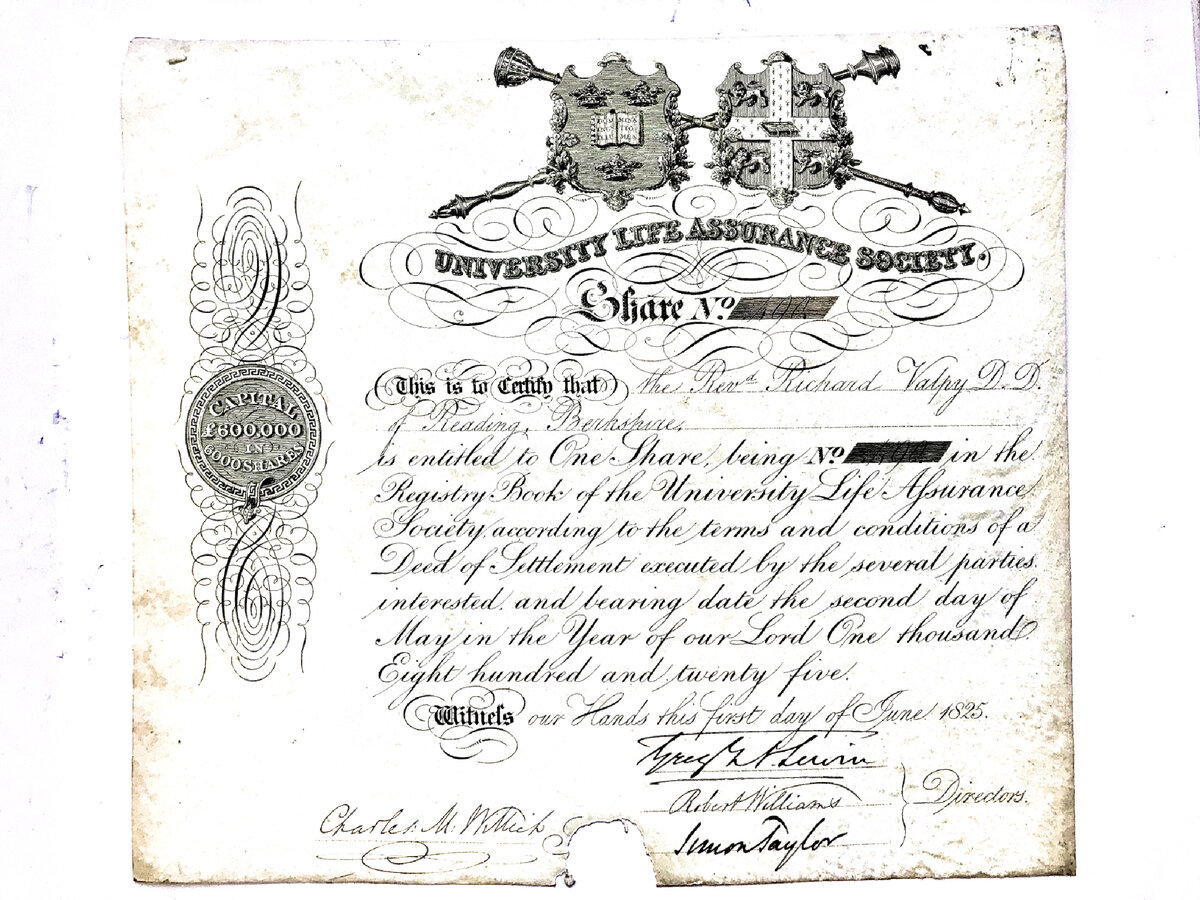 DOM MINA
NUS TIO
ILLU MEA
UNIVERSITY LIFE ASSURANCE SOCIETY.
Share No
This is to Certify that the Revd Richard Valpy D.D.
of Reading, Berkshire,
is entitled to One Share, being No in the
Registry Book of the University Life Assurance
Society, according to the terms and conditions of a
Deed of Settlement executed by the several parties
interested, and bearing date the second day of
May in the Year of our Lord One thousand
Eight hundred and twenty five.
Witness our Hands this first day of June 1825.
Robert Williams
Simon Taylor
Directors.
Charles M. Willich
CAPITAL
£600,000
IN
6000 SHARES